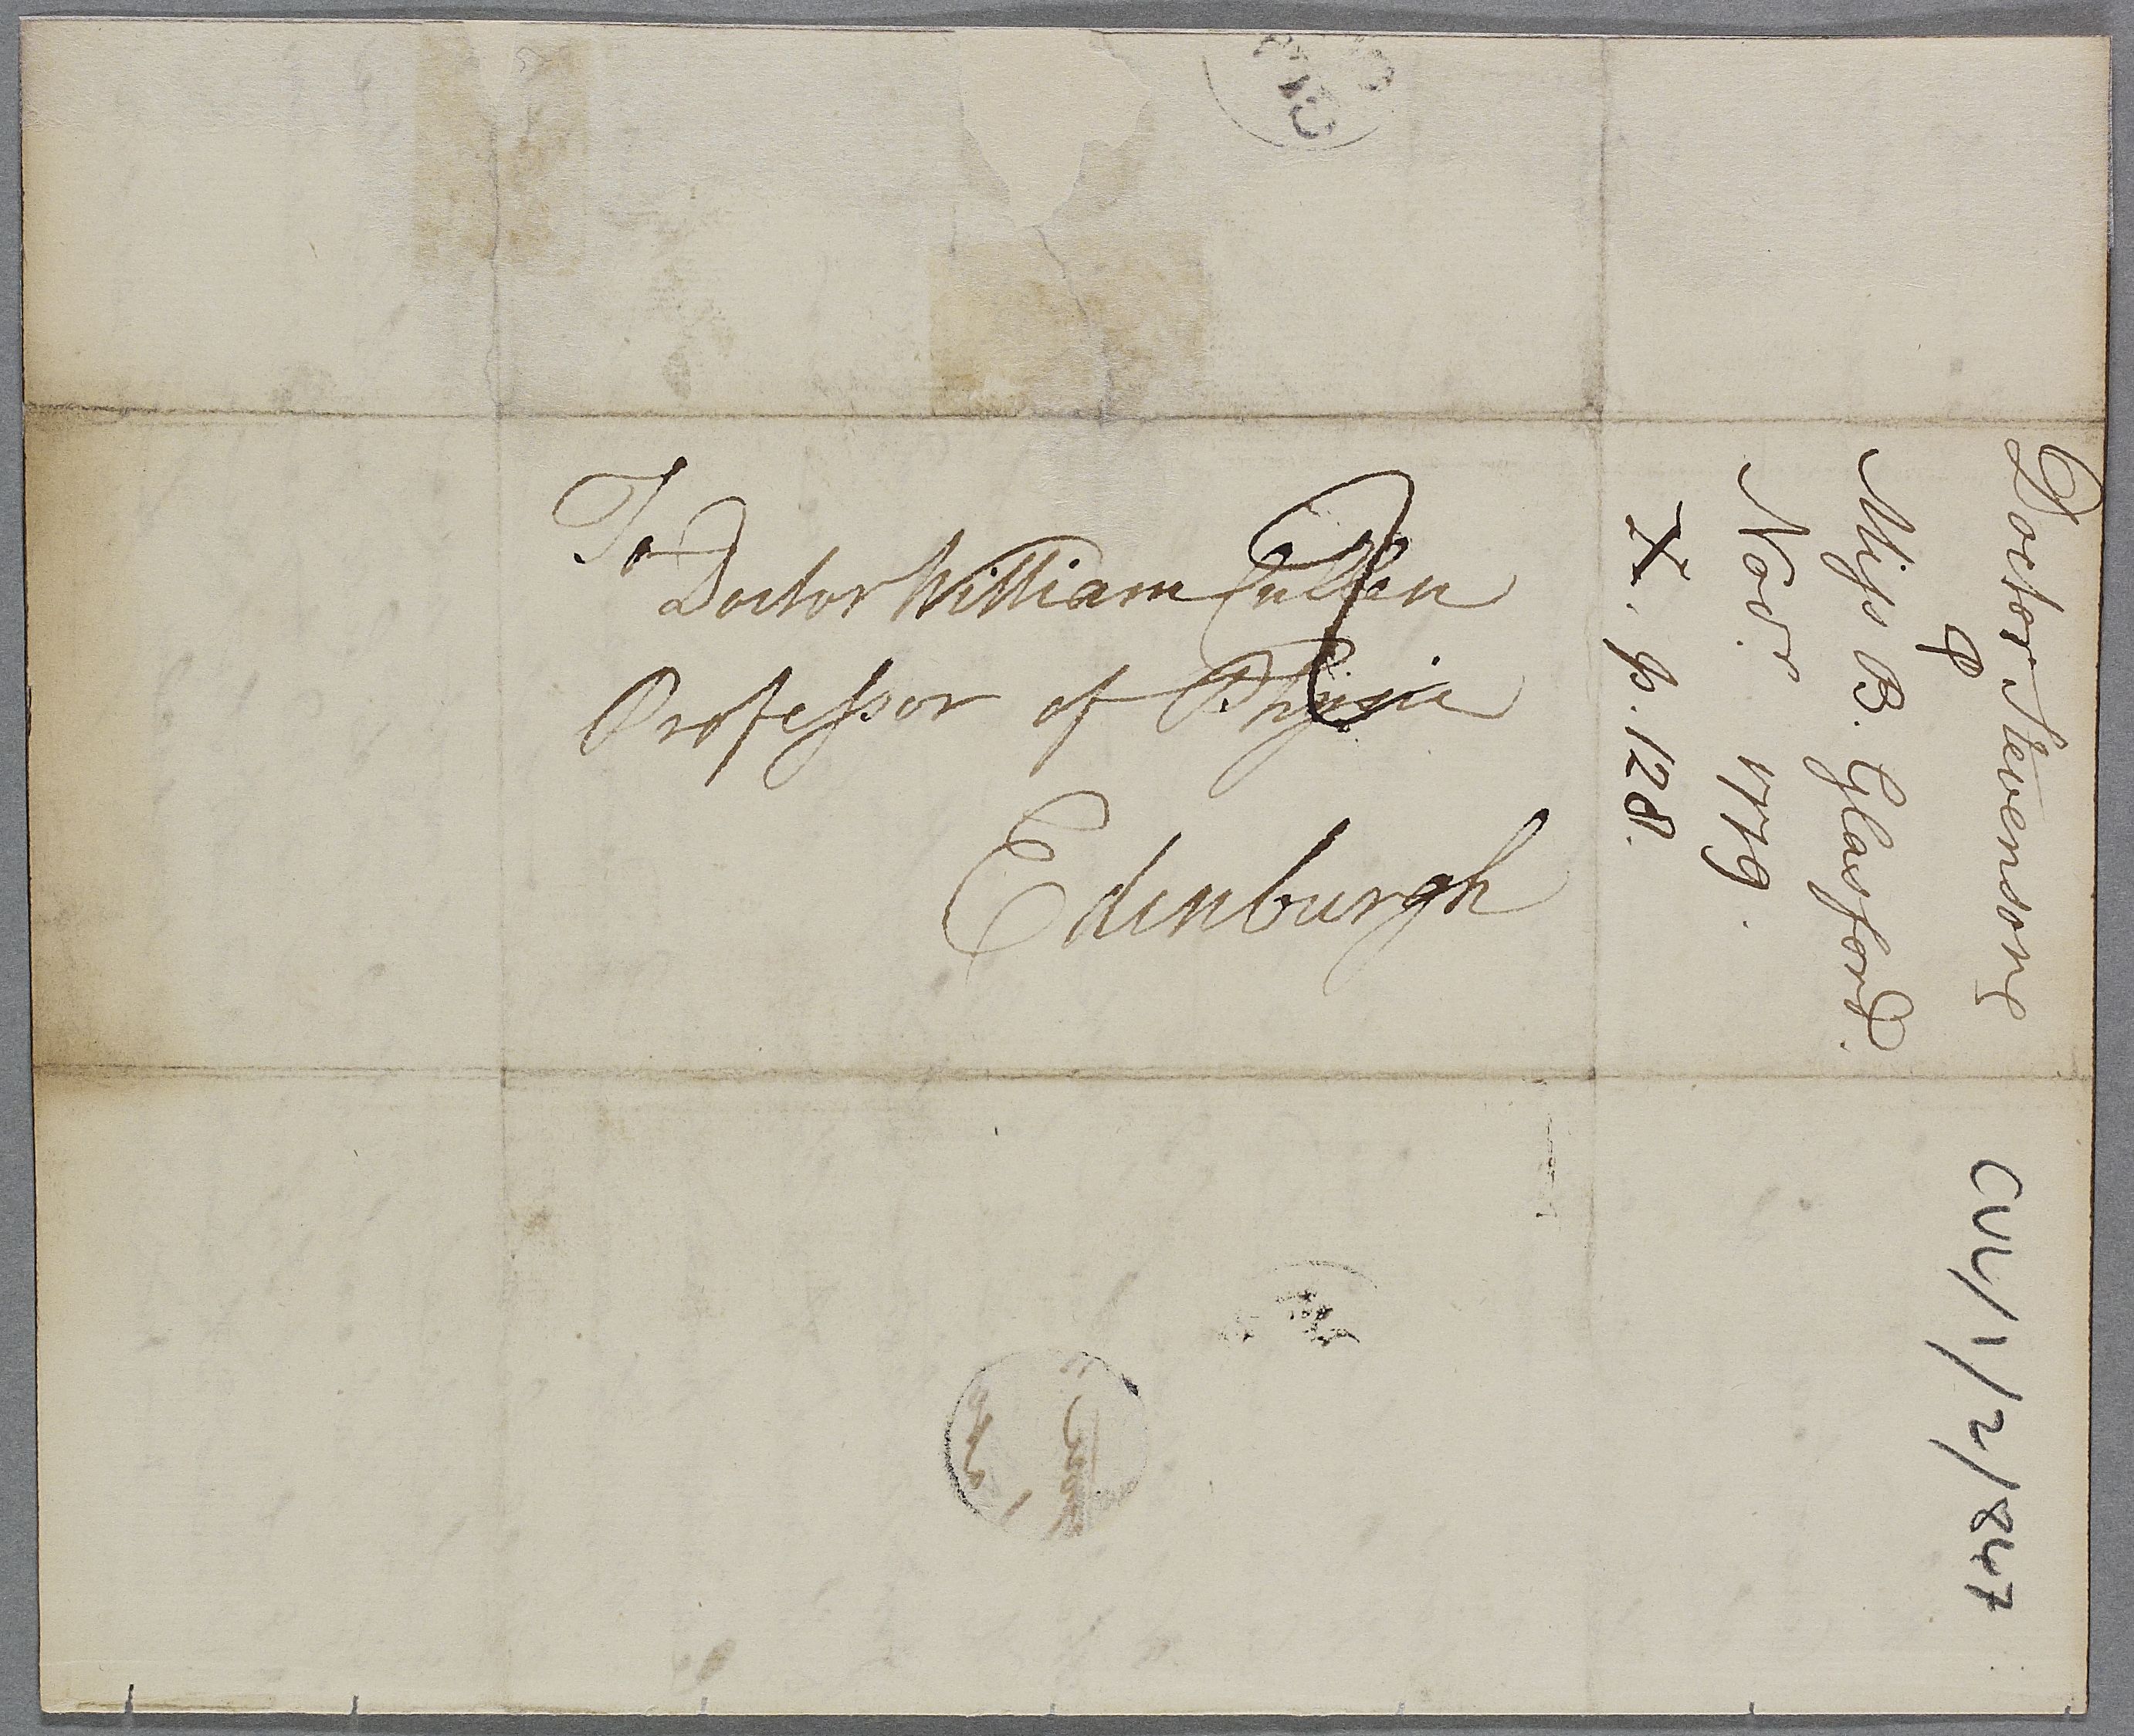 To
Doctor William Cullen
Professor of Physic
Edinburgh
Doctor Stevensone
C
Miss B. Glasford.
Novr. 1779.
X. p. 128.
CUL/1/2/847